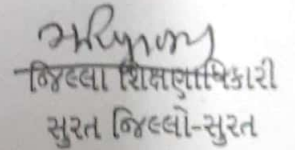 જિલ્લા શિક્ષણાધિકારી
સુરત જિલ્લો-સુરત